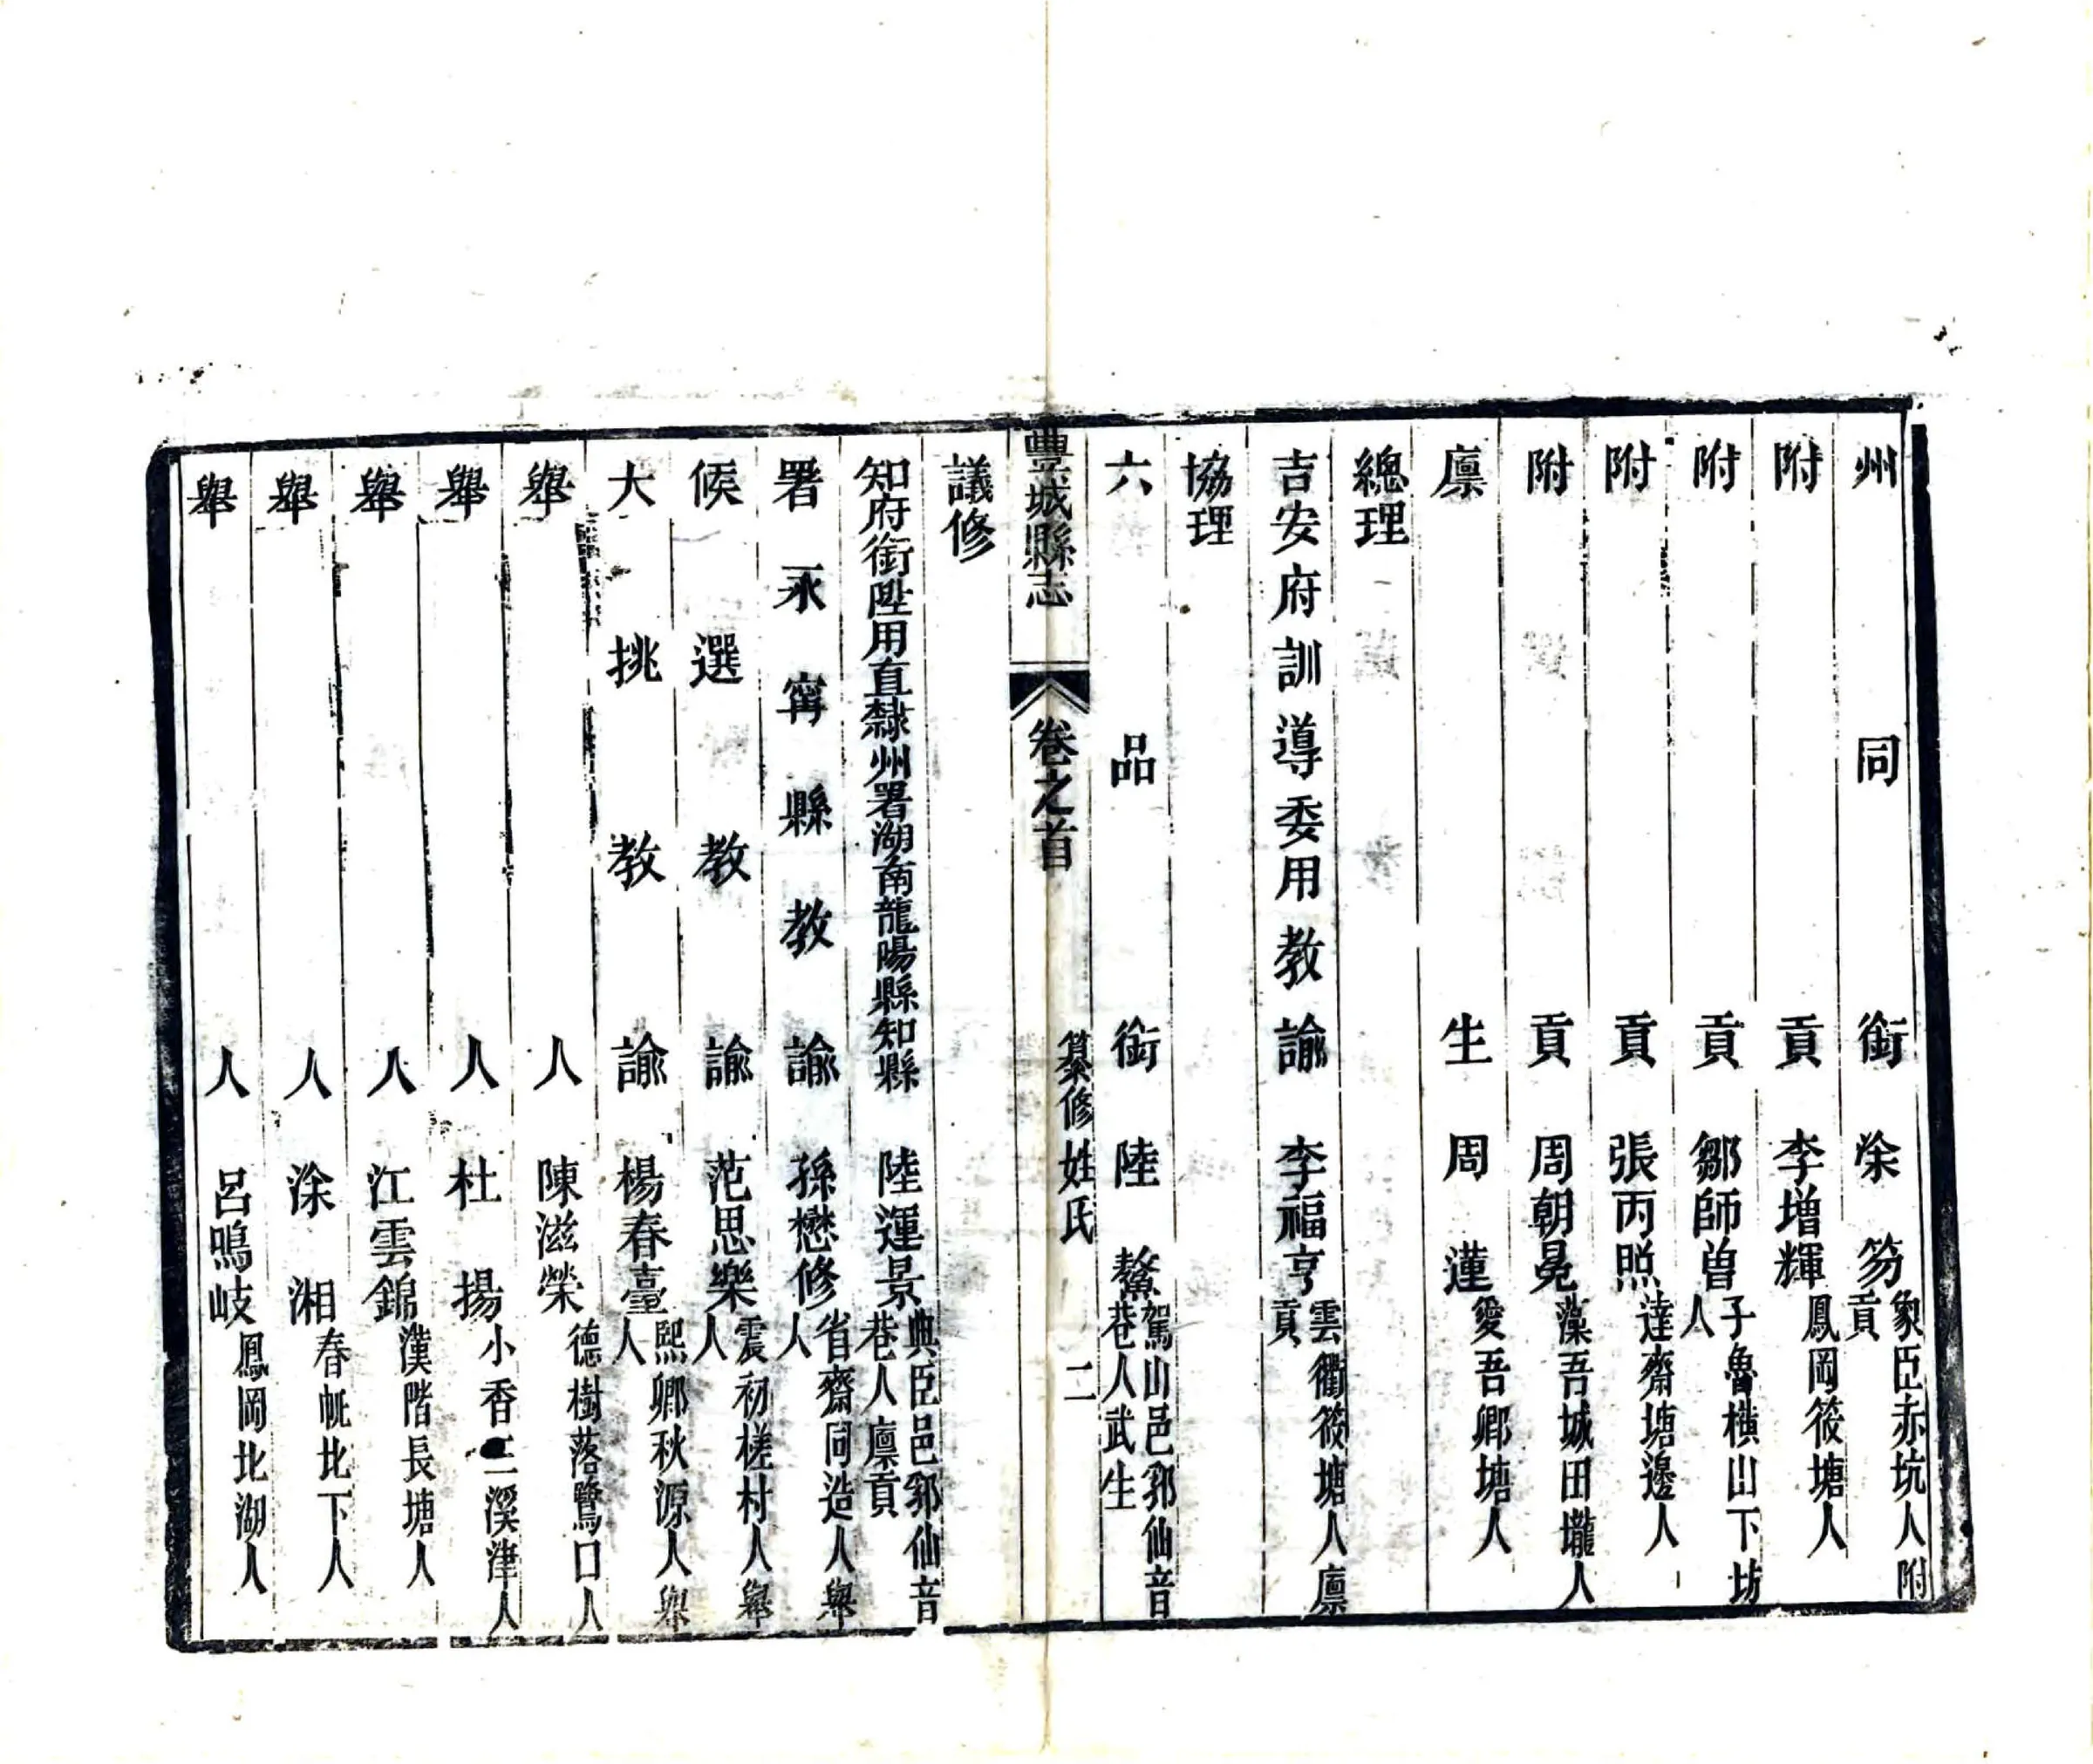 州同銜涂笏象臣赤坑人附貢
附貢李增輝鳳岡筱塘人
附貢鄒師曾子魯橫山下坊人
附貢張丙照達齋塘邊人
附貢周朝冕藻吾城田壠人
廩生周蓮愛吾鄉塘人
總理
吉安府訓導委用教諭李福亨雲衢筱塘人廩貢
協理
六品銜陸鰲駕山邑郛仙音巷人武生
豐城縣志 卷之首 纂修姓氏 二
議修
知府銜陞用直隸州署湖南龍陽縣知縣陸運景典臣邑郛仙音巷人廩貢
署永寧縣教諭孫懋修省齋同造人舉人
候選教諭范思樂震初槎村人舉人
大挑教諭楊春臺熙卿秋源人舉人
舉人陳滋榮德樹落鷺口人
舉人杜揚小香三溪津人
舉人江雲錦漢階長塘人
舉人涂湘春帆北下人
舉人呂鳴岐鳳岡北湖人